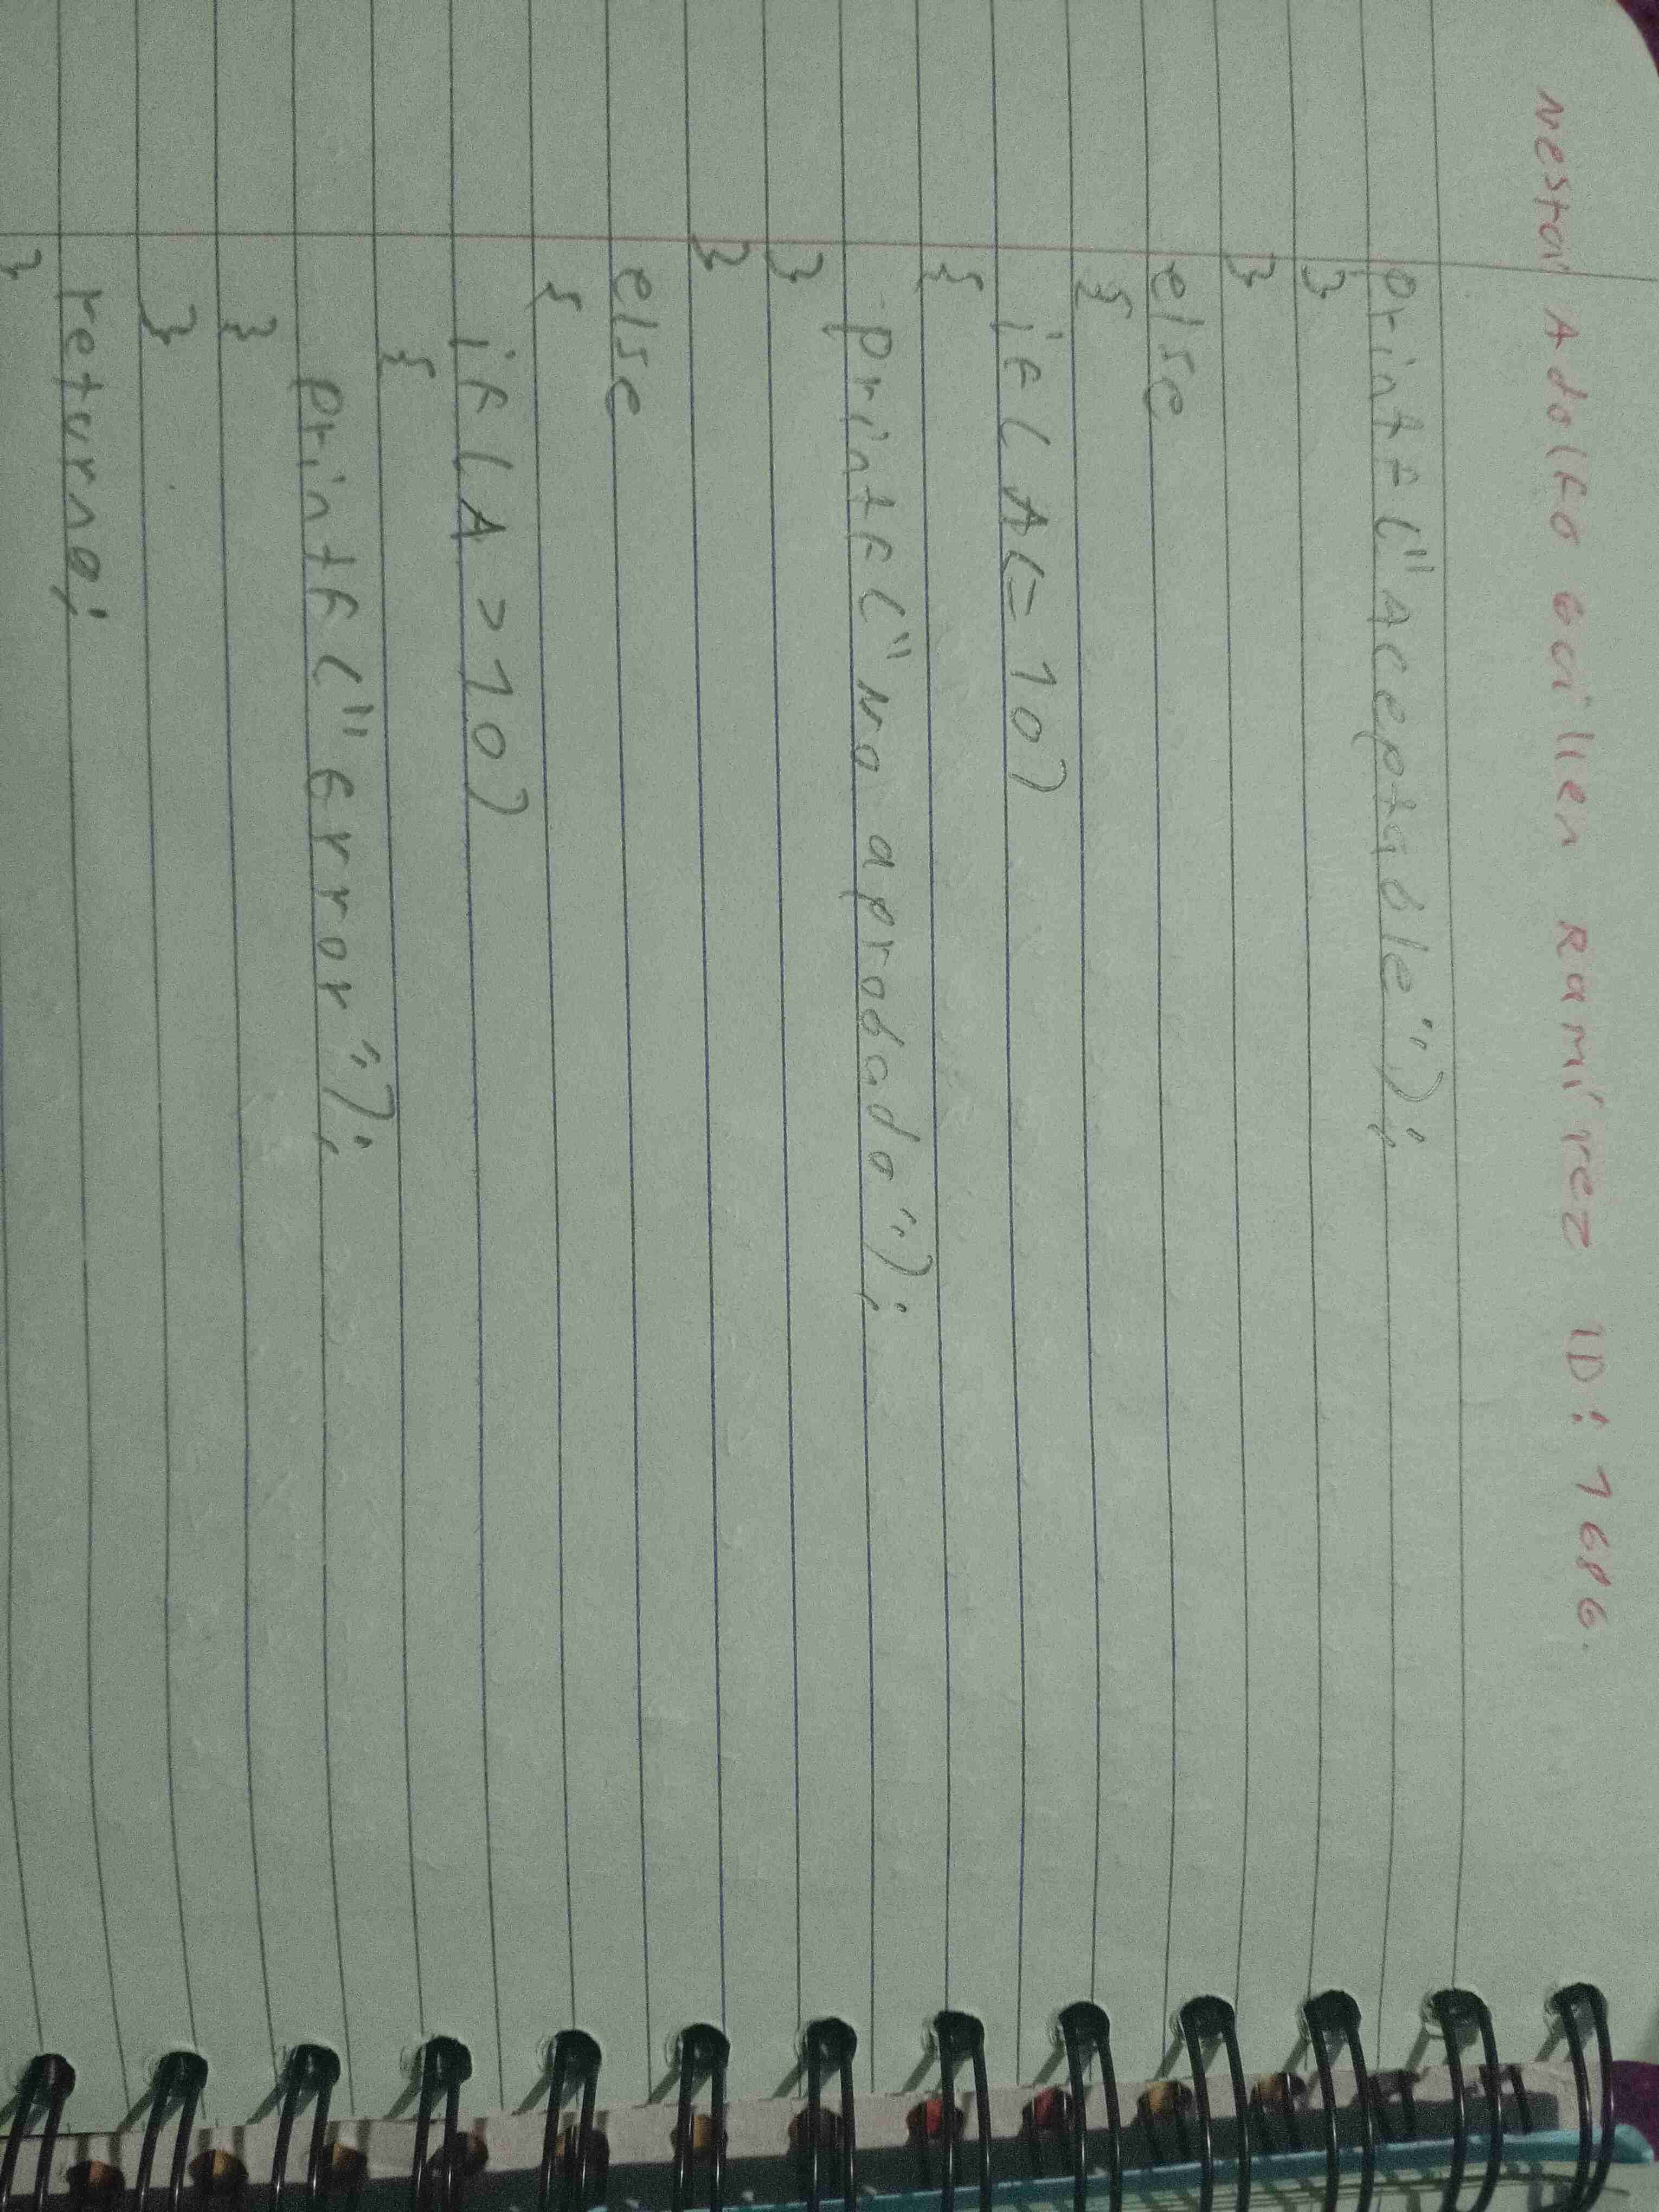 Nestor Adolfo Guillen Ramírez ID: 1686.
printf("Aceptable");
}
}
else
{
if(A<=10)
{
printf("No aprobado");
}
}
else
{
if(A>10)
{
printf("error");
}
}
return0;
}